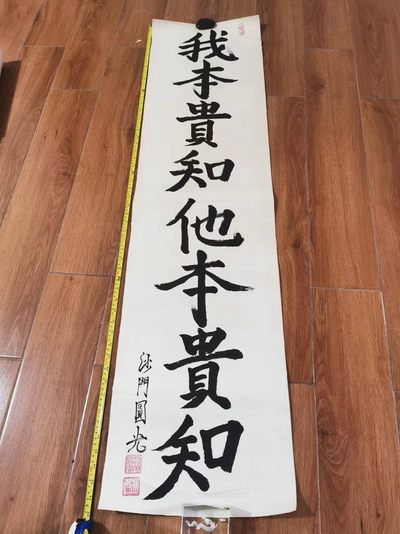 我本貴知他本貴知
沙門圓光